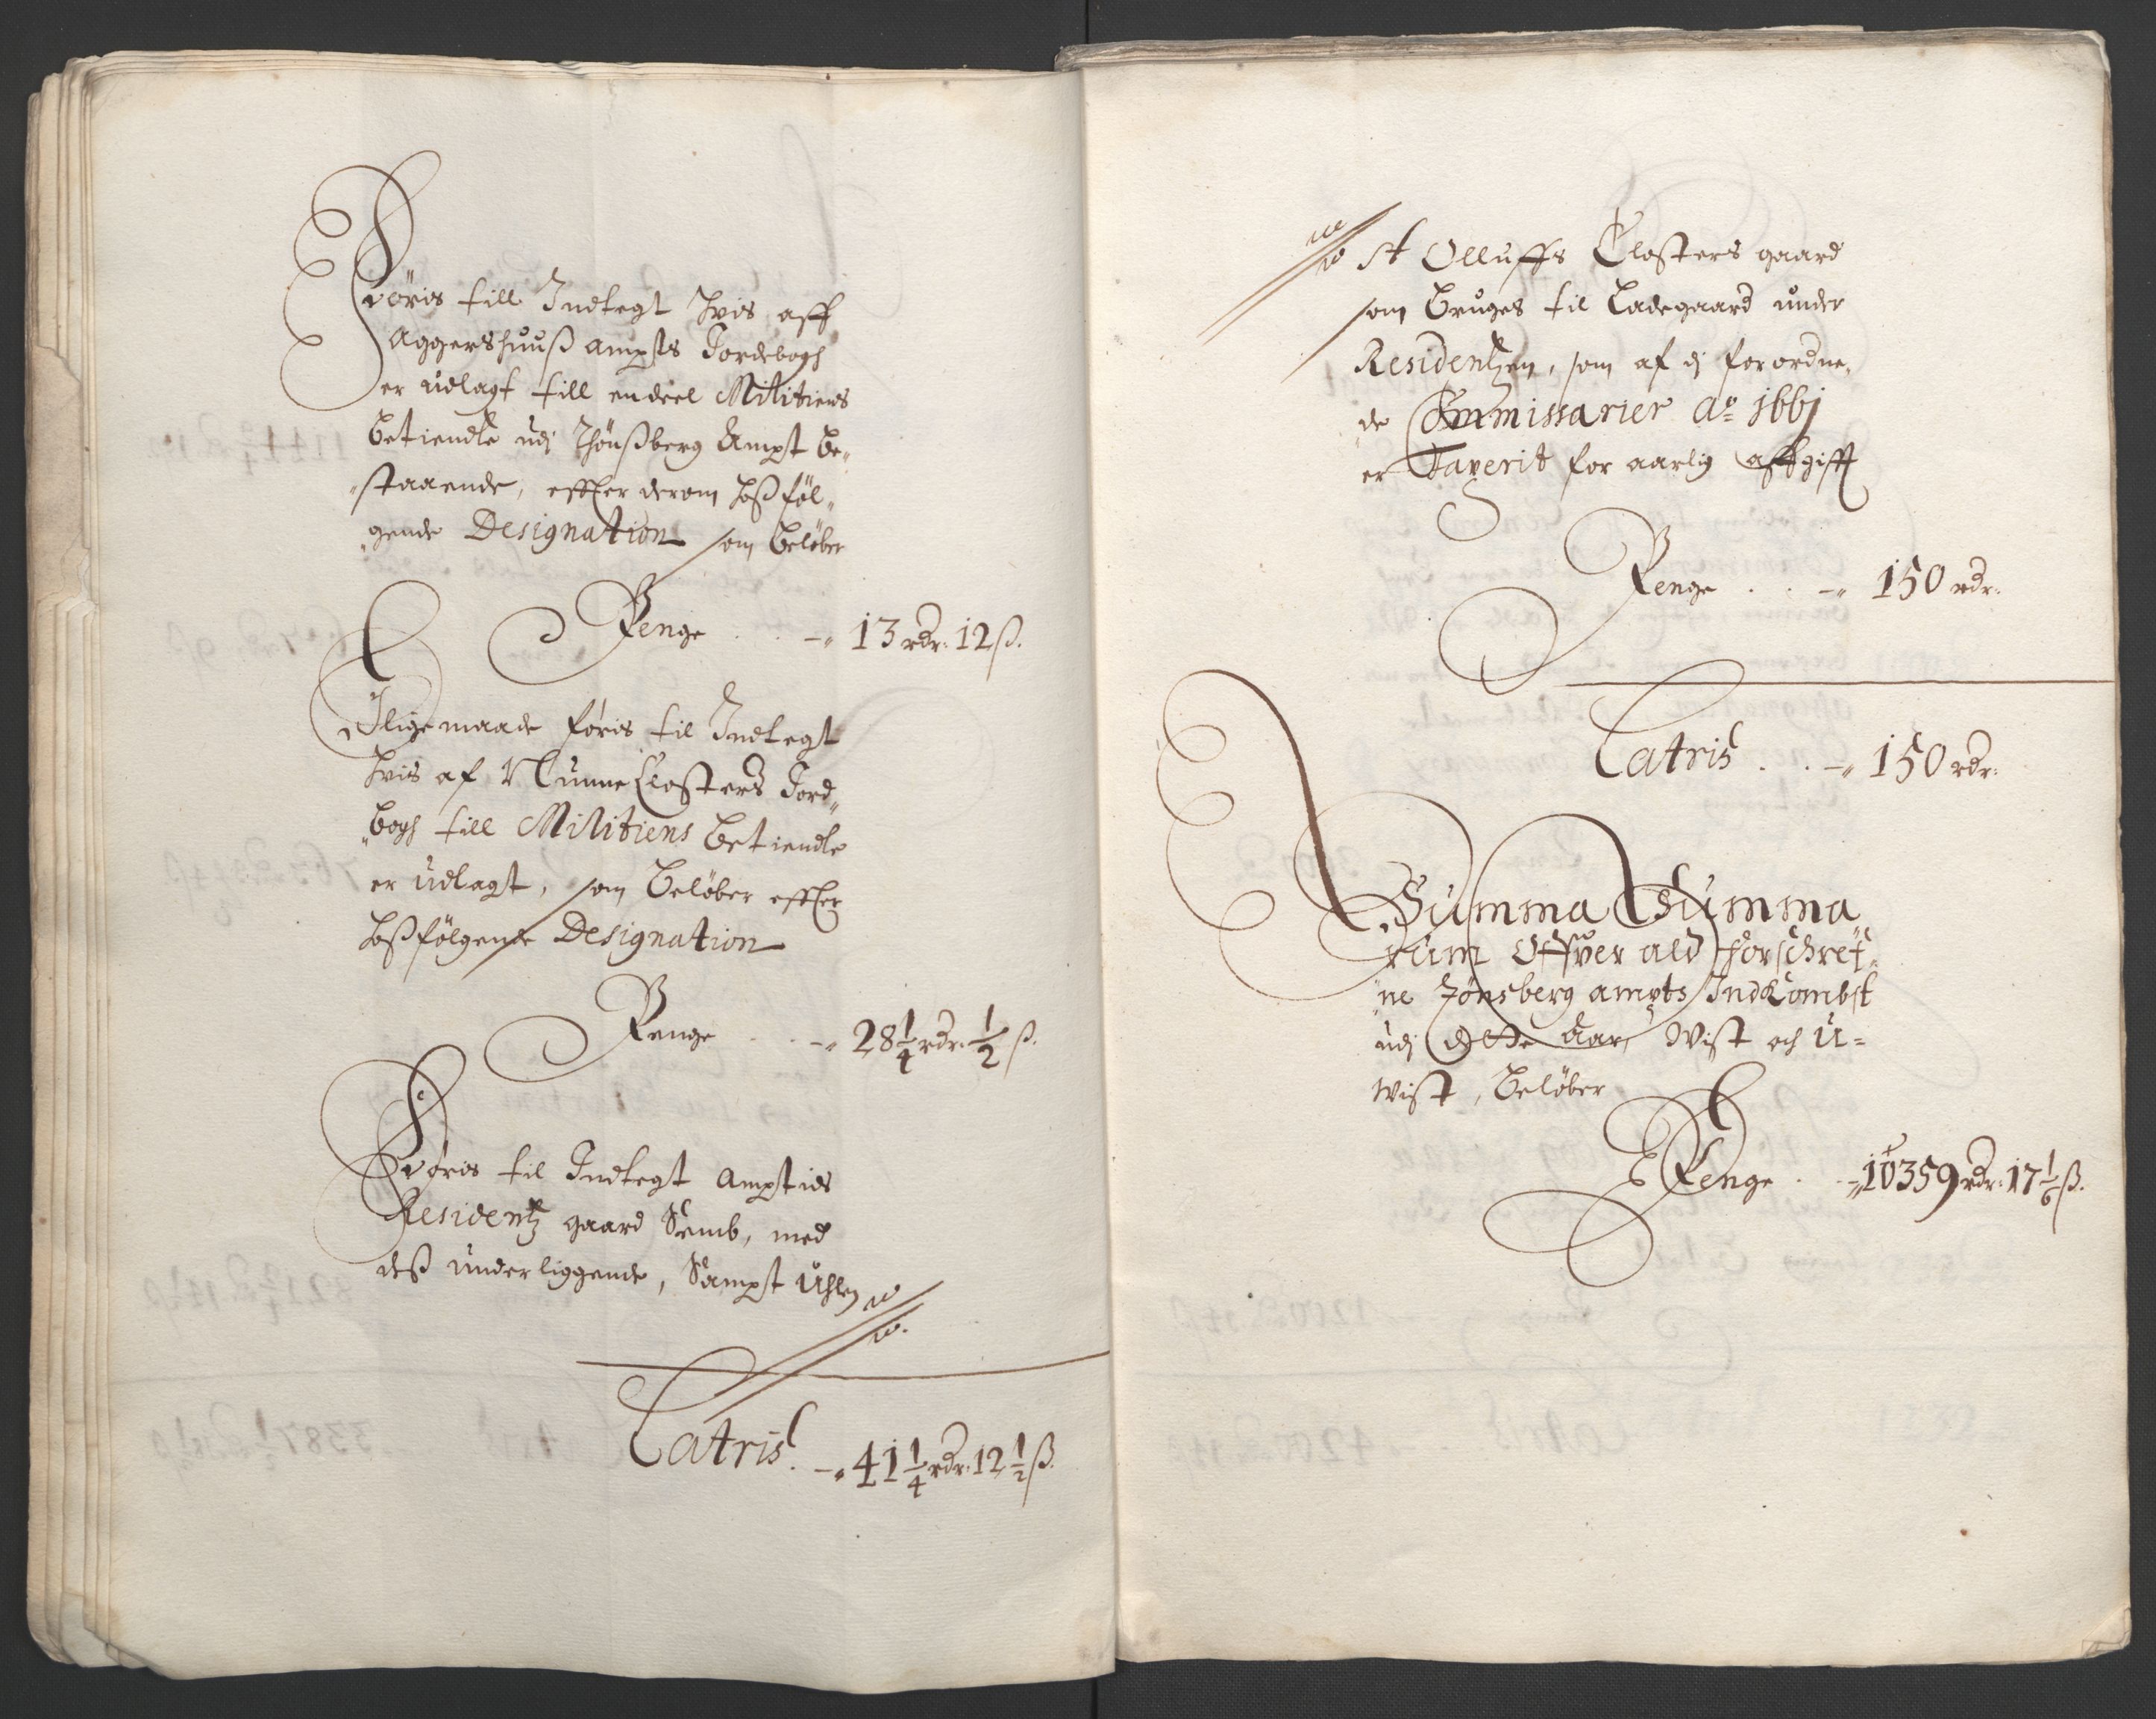 Føris till Indtegt hvis aff
Aggershuuß ampts Jordebogh
er udlagt till endeel Militiens
betiendte udj Thönßberg Ampt be„
„staaende, effter derom hoßföl„
„gende Designation som belöber
Penge . . -„ 13 rdr. 12 ß.
Iligemaade föris til Indtegt
hvis af Nunne Closters Jord„
„bogh till Militiens betiendte
er udlagt, som belöber effter
hoßfölgende Designation
Penge . . -„ 28 1/4 rdr. 1/2 ß.
Föris til Indtegt Amptids
Residentz gaard Semb, med
deß underliggende, Sampt Uhlen
Latris . -„ 41 1/4 rdr. 12 1/2 ß.
St Olluffs Closters gaard
som bruges til Ladegaard under
Residentzen, som af dj forordne„
de Commissarier Ao 1661
er Taxerit for aarlig affgifft
Penge . . -„ 150 rdr.
Latris . . -„ 150 rdr.
Summa Summa
rum Offver ald forschref„
ne Tönsberg ampts Indkombst
udj dette Aar, Wist och U=
wist, belöber
Penge . -„ 10359 rdr. 17 1/6 ß.